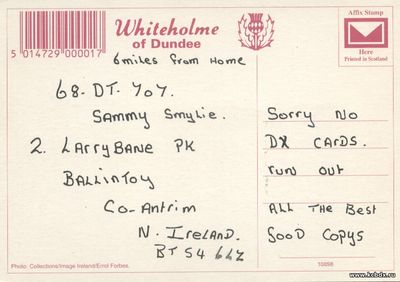 Whiteholme
of Dundee
5 014729 000017
Affix Stamp
Here
Printed in Scotland
6 miles from Home
68. DT. 707.
Sammy Smylie.
2. Larrybane PK
Ballintoy
Co-Antrim
N. Ireland.
BT54 6LZ
Sorry No
DX CARDS.
run out
ALL THE Best
Good Copys
Photo. Collections/Image Ireland/Errol Forbes.
10898
www.kcbdx.ru